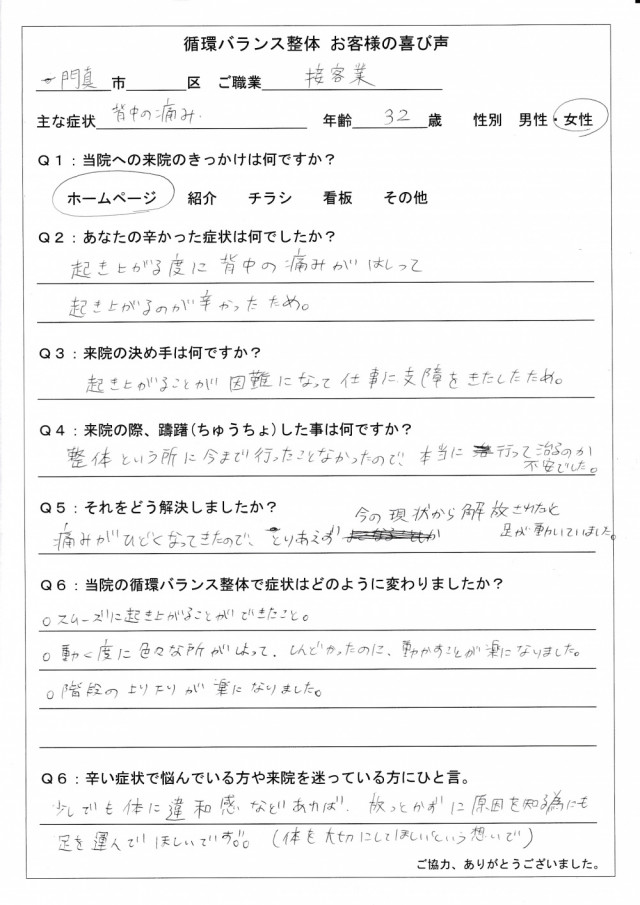 循環バランス整体 お客様の喜び声
門真 市 区 ご職業 接客業
主な症状 背中の痛み. 年齢 32 歳 性別 男性・女性
Q1：当院への来院のきっかけは何ですか？
ホームページ 紹介 チラシ 看板 その他
Q2：あなたの辛かった症状は何でしたか？
起き上がる度に背中の痛みがはしって
起き上がるのが辛かったため。
Q3：来院の決め手は何ですか？
起き上がることが困難になって仕事に支障をきたしたため。
Q4：来院の際、躊躇(ちゅうちょ)した事は何ですか？
整体という所に今まで行ったことなかったので、本当に行って治るのか
不安でした。
Q5：それをどう解決しましたか？
今の現状から解放されたと
痛みがひどくなってきたので、とりあえず 足が動いていました。
Q6：当院の循環バランス整体で症状はどのように変わりましたか？
○スムーズに起き上がることができたこと。
○動く度に色々な所がはって、しんどかったのに、動かすことが楽になりました。
○階段の上り下りが楽になりました。
Q6：辛い症状で悩んでいる方や来院を迷っている方にひと言。
少しでも体に違和感などあれば、放っとかずに原因を知る為にも
足を運んでほしいです。(体を大切にしてほしいという想いで)
ご協力、ありがとうございました。